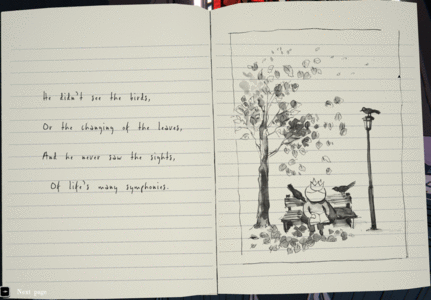 He didn't see the birds,
Or the changing of the leaves,
And he never saw the sights,
Of life's many symphonies.
Next page